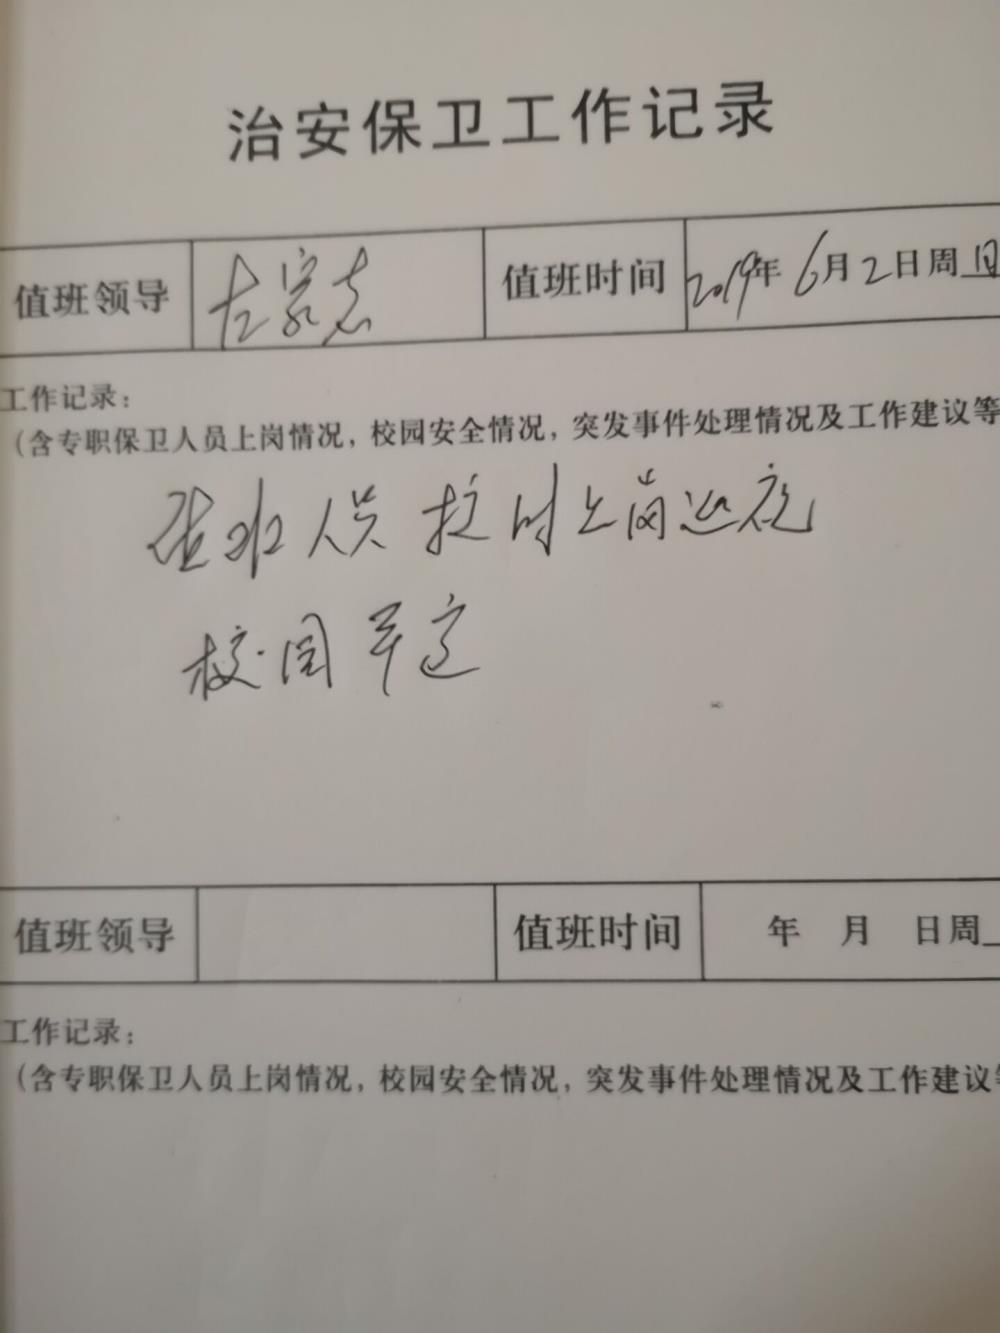 治安保卫工作记录
值班领导 左家志 值班时间 2019年6月2日周日
工作记录：
（含专职保卫人员上岗情况，校园安全情况，突发事件处理情况及工作建议等
值班人员按时上岗巡夜
校园平安
值班领导 值班时间 年 月 日周
工作记录：
（含专职保卫人员上岗情况，校园安全情况，突发事件处理情况及工作建议等